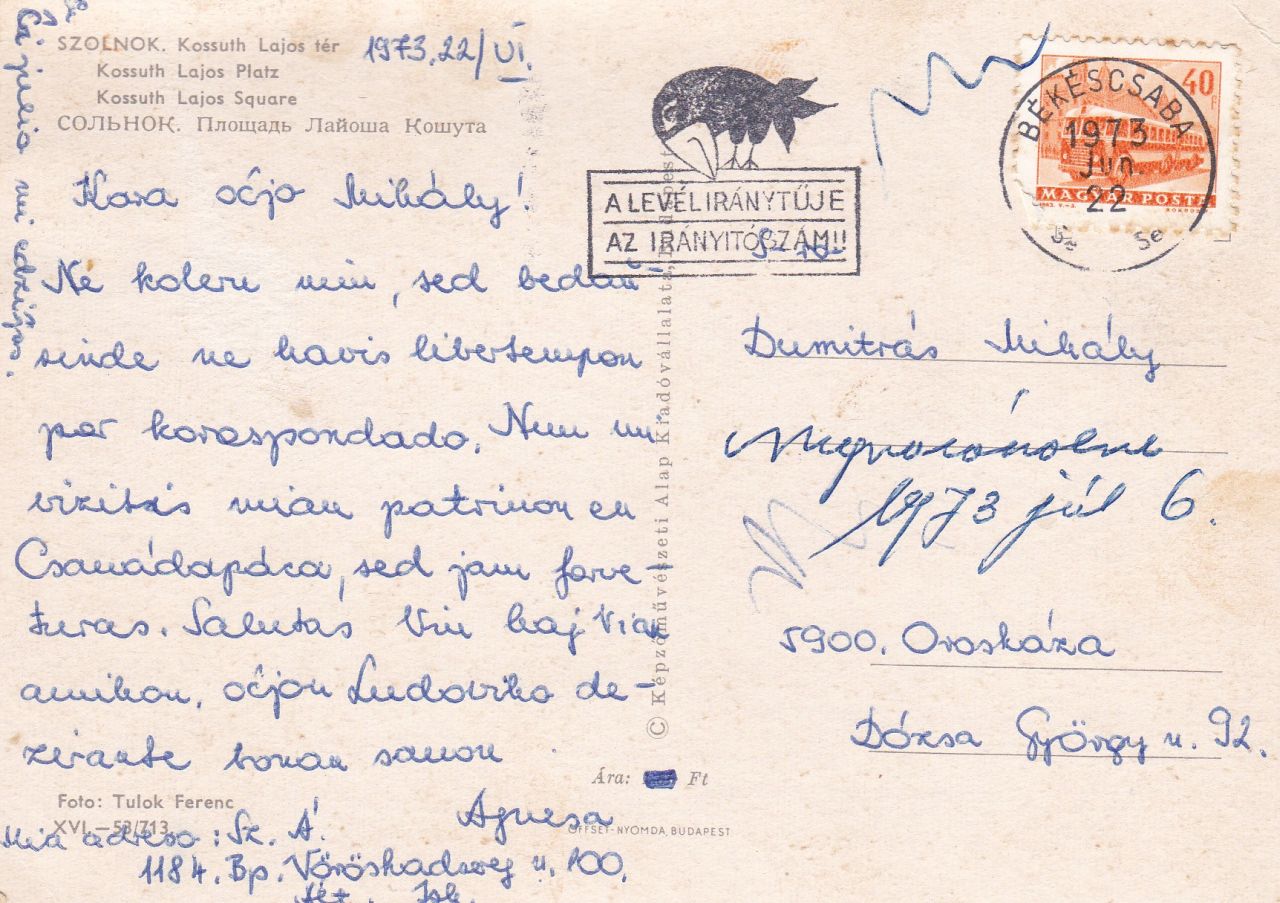 SZOLNOK. Kossuth Lajos tér
Kossuth Lajos Platz
Kossuth Lajos Square
СОЛЬНОК. Площадь Лайоша Кошута
1973. 22/VI.
Kara oĉjo Mihály!
Ne koleru min, sed bedaŭ-
rinde ne havis libertempon
por korespondado. Nun mi
vizitas mian patrinon en
Csanádapáca, sed jam forve-
turas. Salutas Vin kaj Vian
amikon, oĉjon Ludoviko de-
zirante bonan sanon
Agnesa
Mia adreso: Sz. Á.
1184. Bp. Vöröshadsereg u. 100.
Ált. Isk.
Ĉi julio mi edziĝos.
Foto: Tulok Ferenc
XVI.—53/713
© Képzőművészeti Alap Kiadóvállalata, Budapest
Ára: Ft
OFFSET-NYOMDA, BUDAPEST
A LEVÉL IRÁNYTŰJE
AZ IRÁNYÍTÓSZÁM!!
BÉKÉSCSABA
1973
JUN.
22
40
MAGYAR POSTA
S-ro
Dumitrás Mihály
1973 júl 6.
5900. Orosháza
Dózsa György u. 92.